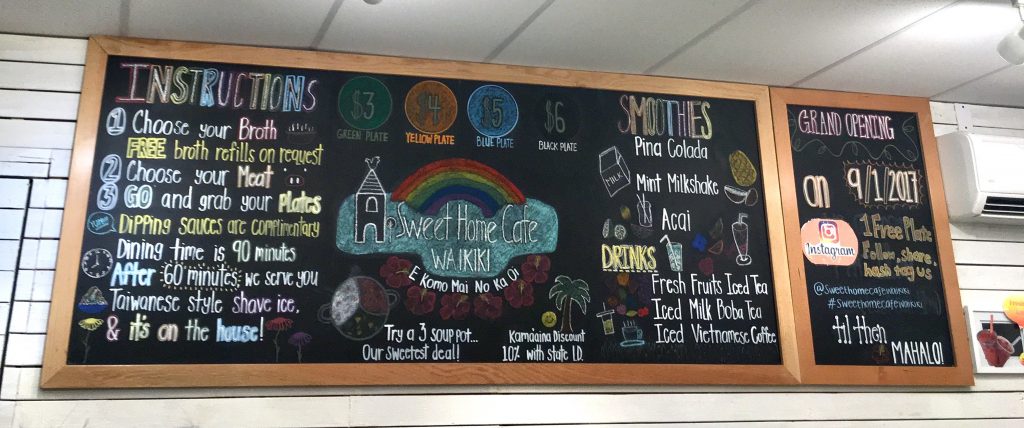 INSTRUCTIONS
1 Choose your Broth
FREE broth refills on request
2 Choose your Meat
3 GO and grab your Plates
Dipping sauces are complimentary
Dining time is 90 minutes
After 60 minutes we serve you
Taiwanese style shave ice,
& it's on the house!
$3
GREEN PLATE
$4
YELLOW PLATE
$5
BLUE PLATE
$6
BLACK PLATE
Sweet Home Cafe
WAIKIKI
E Komo Mai No Ka Oi
Try a 3 soup pot...
Our sweetest deal!!
Kamaaina Discount
10% with state I.D.
SMOOTHIES
Pina Colada
MILK
Mint Milkshake
Acai
DRINKS
Fresh Fruits Iced Tea
Iced Milk Boba Tea
Iced Vietnamese Coffee
GRAND OPENING
on 9/1/2017
Instagram
1 Free Plate
Follow, share,
hash tag us
@sweethomecafewaikiki
#sweethomecafewaikiki
til then
MAHALO!